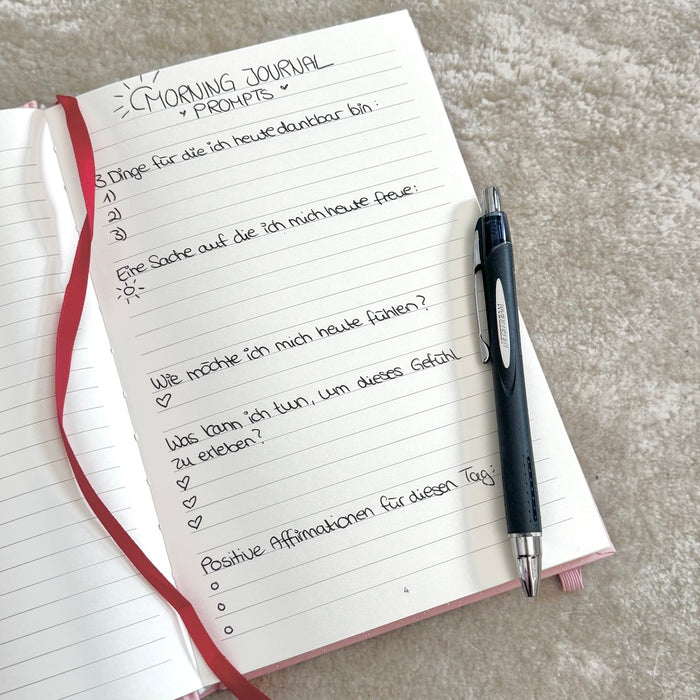 MORNING JOURNAL
PROMPTS
3 Dinge für die ich heute dankbar bin:
1)
2)
3)
Eine Sache auf die ich mich heute freue:
Wie möchte ich mich heute fühlen?
Was kann ich tun, um dieses Gefühl
zu erleben?
Positive Affirmationen für diesen Tag:
4
JETSTREAM